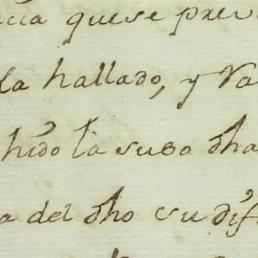 cia quese prev
la hallado, y Va
hido la suso dha
a del dho su dif